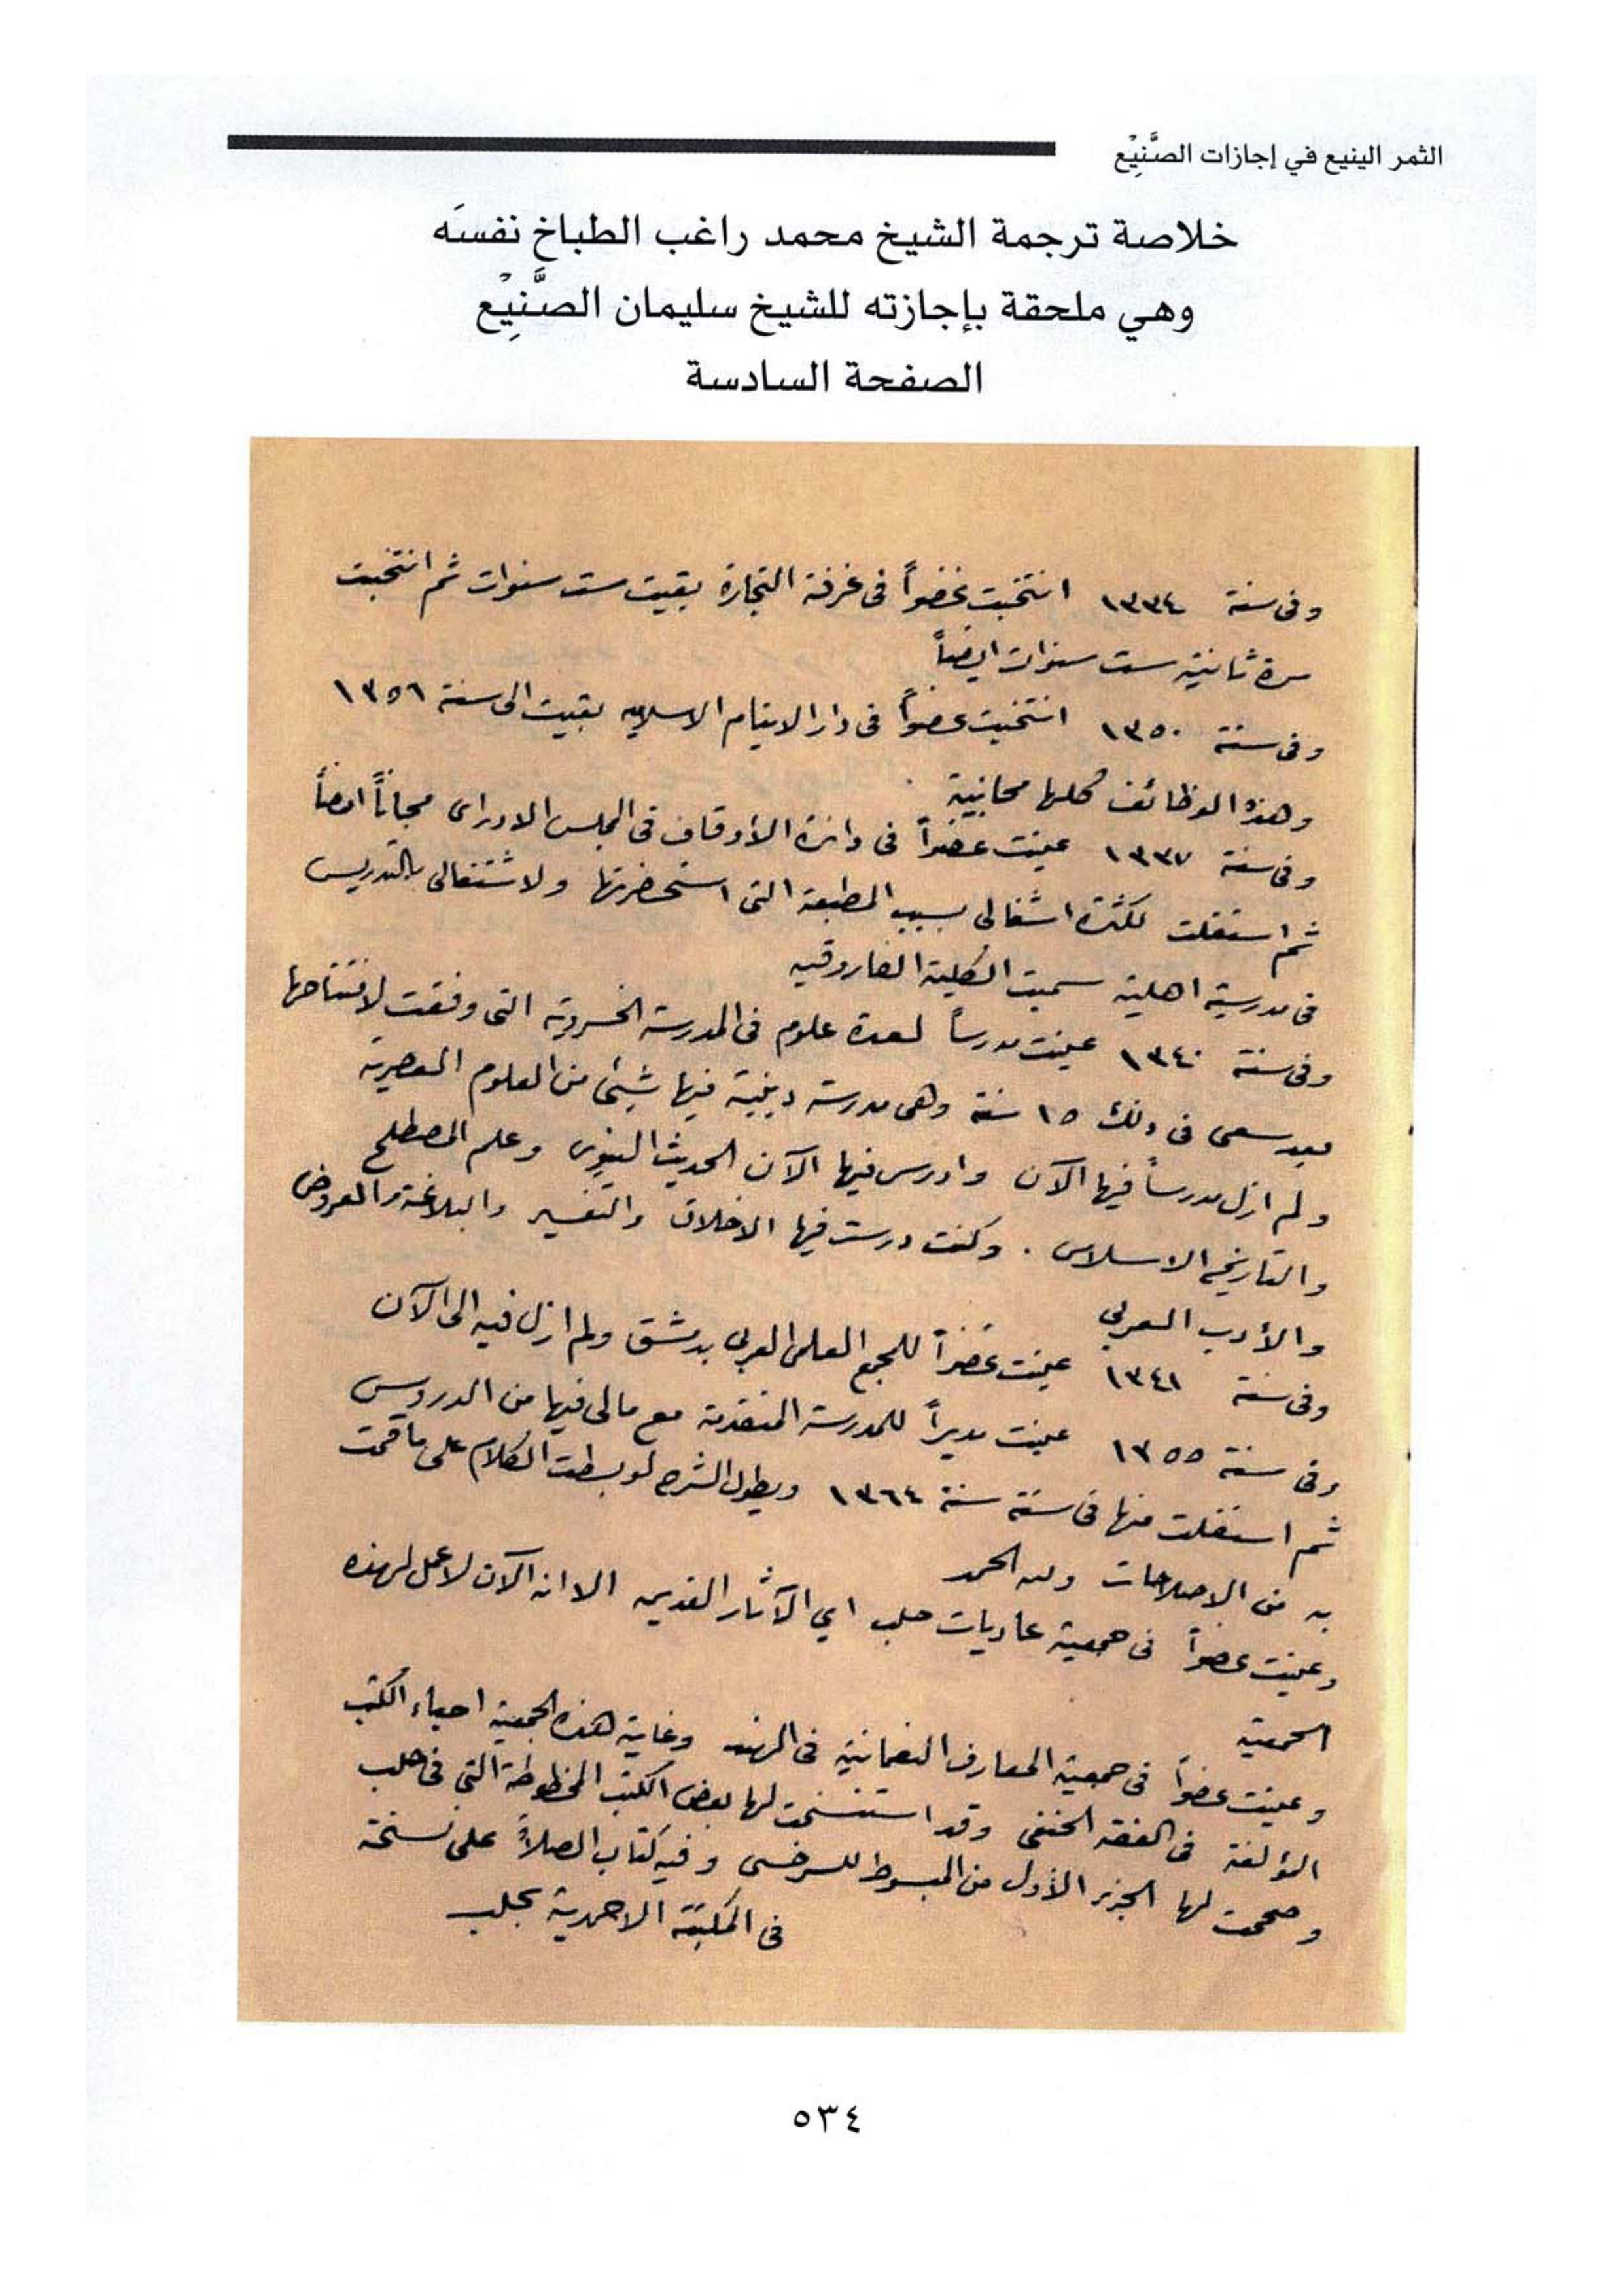 الثمر الينيع في إجازات الصَّنِيْع
خلاصة ترجمة الشيخ محمد راغب الطباخ نفسَه
وهي ملحقة بإجازته للشيخ سليمان الصَّنِيْع
الصفحة السادسة
وفى سنة ١٣٣٤ انتخبت عضواً فى غرفة التجارة بقيت ست سنوات ثم انتخبت
مرة ثانية ست سنوات ايضاً
وفى سنة ١٣٥٠ انتخبت عضواً فى دار الايتام الاسلاميه بقيت الى سنة ١٣٥٦
وهذه الوظائف كلها مجانية
وفى سنة ١٣٣٧ عينت عضواً فى دائرة الأوقاف فى المجلس الادارى مجاناً ايضاً
ثم استقلت لكثرة اشغالى بسبب المطبعة التى استحضرتها ولاشتغالى بالتدريس
فى مدرسة اهلية سميت الكلية الفاروقيه
وفى سنة ١٣٤٠ عينت مدرساً لعدة علوم فى المدرسة الخسروية التى وفقت لافتتاحها
بعد سعى فى ذلك ١٥ سنة وهى مدرسة دينية فيها شيئ من العلوم العصرية
ولم ازل مدرساً فيها الآن وادرس فيها الآن الحديث النبوى وعلم المصطلح
والتاريخ الاسلامى . وكنت درست فيها الاخلاق والتفسير والبلاغة والعروض
والأدب العربي
وفى سنة ١٣٤١ عينت عضواً للمجمع العلمى العربى بدمشق ولم ازل فيه الى الآن
وفى سنة ١٣٥٥ عينت مديراً للمدرسة المتقدمة مع مالى فيها من الدروس
ثم استقلت منها فى سنة سنة ١٣٦٤ ويطول الشرح لو بسطت الكلام على ما قمت
به من الاصلاحات ولله الحمد
وعينت عضواً فى جمعية عاديات حلب اي الآثار القديمه الا انه الآن لا عمل لهذه
الجمعية
وعينت عضواً فى جمعية المعارف النعمانية فى الهند وغاية هذه الجمعية احياء الكتب
المؤلفة فى الفقه الحنفى وقد استنسخت لها بعض الكتب المخطوطة التى فى حلب
وصححت لها الجزء الأول من المبسوط للسرخسى وفيه كتاب الصلاة على نسخة
فى المكتبة الاحمدية بحلب
٥٣٤